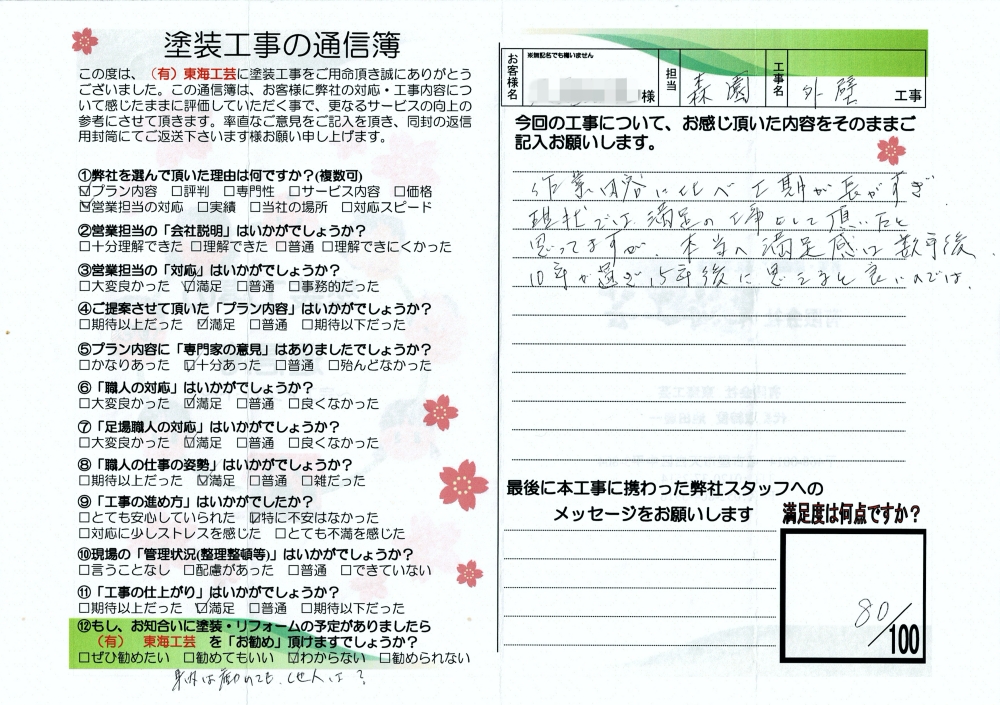 塗装工事の通信簿
この度は、（有）東海工芸に塗装工事をご用命頂き誠にありがとう
ございました。この通信簿は、お客様に弊社の対応・工事内容に
ついて感じたままに評価していただく事で、更なるサービスの向上の
参考にさせて頂きます。率直なご意見をご記入を頂き、同封の返信
用封筒にてご返送下さいます様お願い申し上げます。
①弊社を選んで頂いた理由は何ですか?(複数可)
☑プラン内容 □評判 □専門性 □サービス内容 □価格
☑営業担当の対応 □実績 □当社の場所 □対応スピード
②営業担当の「会社説明」はいかがでしょうか?
□十分理解できた □理解できた □普通 □理解できにくかった
③営業担当の「対応」はいかがでしょうか?
□大変良かった ☑満足 □普通 □事務的だった
④ご提案させて頂いた「プラン内容」はいかがでしょうか?
□期待以上だった ☑満足 □普通 □期待以下だった
⑤プラン内容に「専門家の意見」はありましたでしょうか?
□かなりあった ☑十分あった □普通 □殆んどなかった
⑥「職人の対応」はいかがでしょうか?
□大変良かった ☑満足 □普通 □良くなかった
⑦「足場職人の対応」はいかがでしょうか?
□大変良かった ☑満足 □普通 □良くなかった
⑧「職人の仕事の姿勢」はいかがでしょうか?
□期待以上だった ☑満足 □普通 □雑だった
⑨「工事の進め方」はいかがでしたか?
□とても安心していられた ☑特に不安はなかった
□対応に少しストレスを感じた □とても不満を感じた
⑩現場の「管理状況(整理整頓等)」はいかがでしょうか?
□言うことなし □配慮があった □普通 □できていない
⑪「工事の仕上がり」はいかがでしょうか?
□期待以上だった ☑満足 □普通 □期待以下だった
⑫もし、お知合いに塗装・リフォームの予定がありましたら
（有） 東海工芸 を「お勧め」頂けますでしょうか?
□ぜひ勧めたい □勧めてもいい ☑わからない □勧められない
身内は勧めても、他人は?
お客様名
※無記名でも構いません
様
担当
森園
工事名
外壁
工事
今回の工事について、お感じ頂いた内容をそのままご
記入お願いします。
作業内容に比べ工期が長がすぎ
現状では満足の工事として頂いたと
思ってますが、本当の満足感は数年後、
10年が過ぎ15年後に思えると良いのでは。
最後に本工事に携わった弊社スタッフへの
メッセージをお願いします
満足度は何点ですか?
80/100